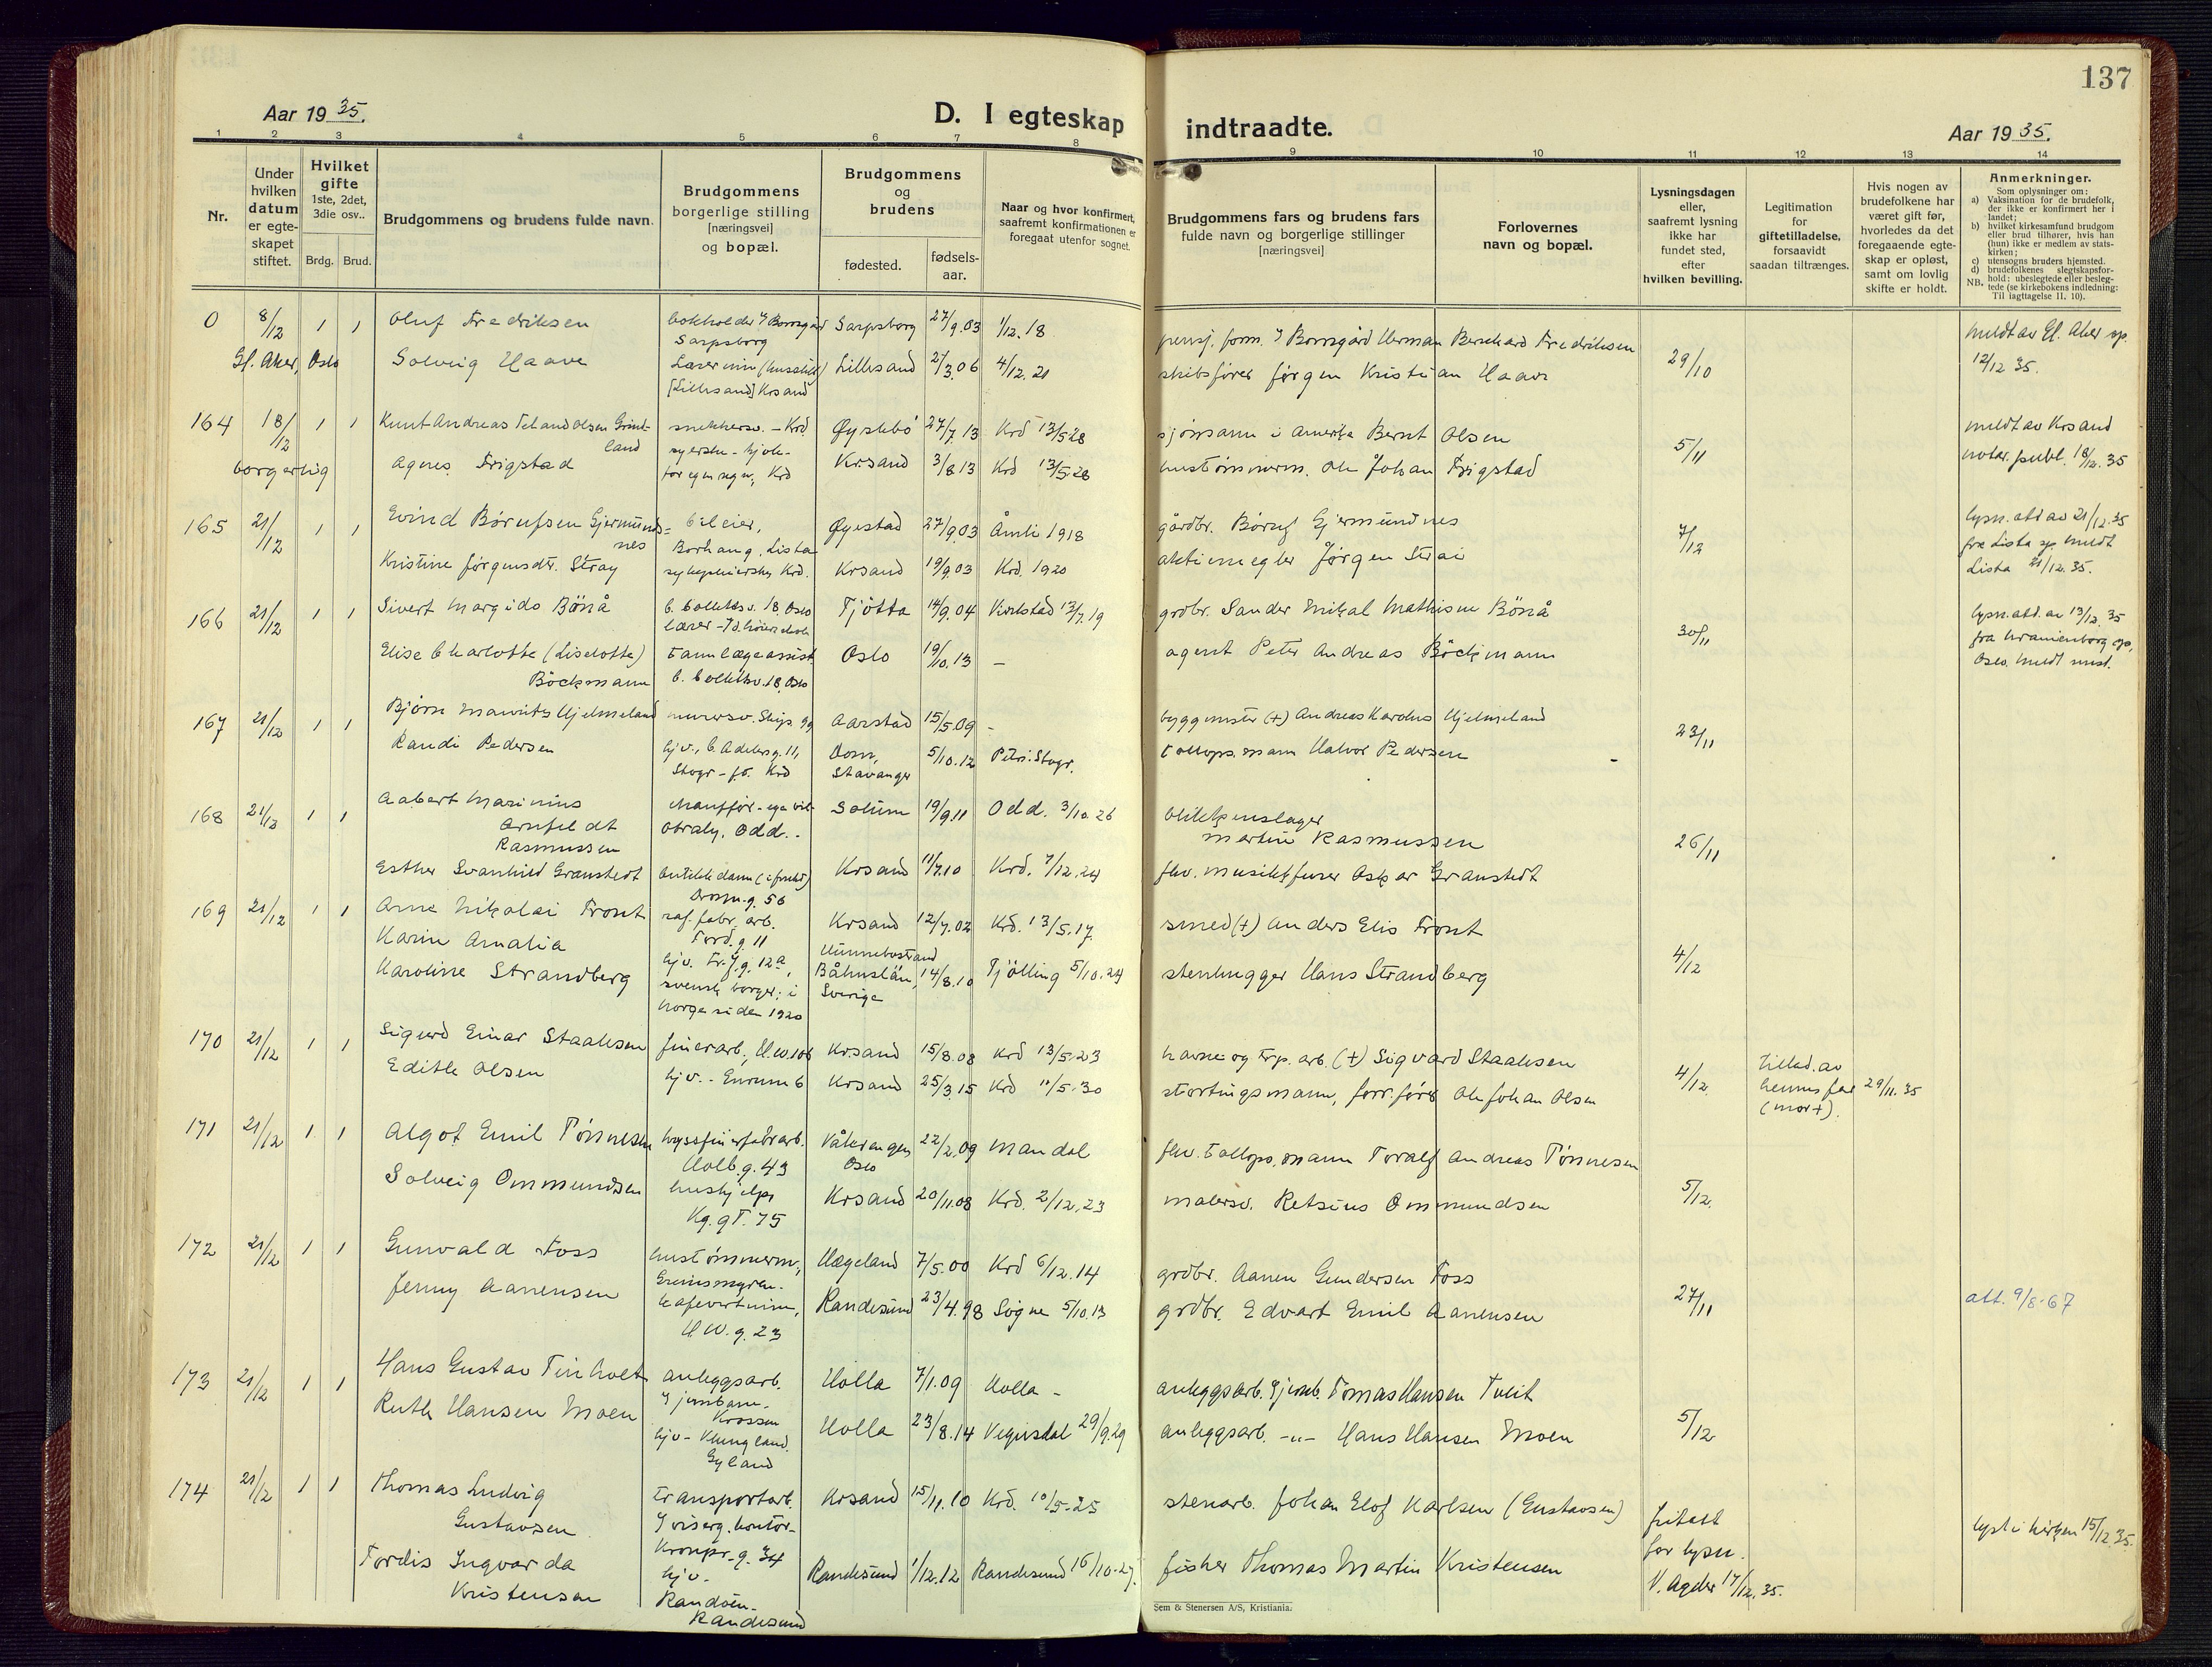 137
Aar 19 35.
D. I egteskap indtraadte.
Aar 19 35.
1 2 3 4 5 6 7 8 9 10 11 12 13 14
Nr.
Under hvilken datum er egteskapet stiftet.
Hvilket gifte 1ste, 2det, 3die osv..
Brdg. Brud.
Brudgommens og brudens fulde navn.
Brudgommens borgerlige stilling [næringsvei] og bopæl.
Brudgommens og brudens
fødested.
fødsels-aar.
Naar og hvor konfirmert, saafremt konfirmationen er foregaat utenfor sognet.
Brudgommens fars og brudens fars fulde navn og borgerlige stillinger [næringsvei]
Forlovernes navn og bopæl.
Lysningsdagen eller, saafremt lysning ikke har fundet sted, efter hvilken bevilling.
Legitimation for giftetilladelse, forsaavidt saadan tiltrænges.
Hvis nogen av brudefolkene har været gift før, hvorledes da det foregaaende egteskap er opløst, samt om lovlig skifte er holdt.
Anmerkninger.
Som oplysninger om:
a) Vaksination for de brudefolk, der ikke er konfirmert her i landet;
b) hvilket kirkesamfund brudgom eller brud tilhører, hvis han (hun) ikke er medlem av statskirken;
c) utensogns bruders hjemsted.
d) brudefolkenes slegtskapsforhold: ubeslegtede eller beslegtede (se kirkebokens indledning:
NB. Til iagttagelse II. 10).
0 8/12 1 1 Oluf Fredriksen Sarpsborg 27/9.03 1/12.18 Herman Bernhard Fredriksen meldt av Gl. Aker sp.
Sarpsborg
Gl. Aker, Oslo Solveig Haave Lillesand 2/3.06 4/12.21 skibsfører Jørgen Kristian Haave 29/10 12/12 35.
[Lillesand] Krsand
164 18/12 1 1 Knut Andreas Teland Olsen Grindland snekkersv. - Krd. Øyslebø 27/7 13 Krd 13/5 28 sjømann i Amerika Bernt Olsen 5/11 meldt av Krsand
borgerlig Agnes Frigstad Krsand 3/8 13 Krd 13/5.28 hustømmerm. Ole Johan Frigstad notar. publ. 18/12. 35
165 21/12 1 1 Eivind Børufsen Gjermundsnes bileier, Øyestad 27/9.03 Åmli 1918 gårdbr. Gjermundnes 7/12 lysn. att av 21/12.35
Borhaug, Lista fra Lista sp. meldt
Kristine Jørgensdtr. Stray Krd. Krsand 19/9.03 Krd. 1920 aktiemegler Jørgen Strai Lista 21/12.35.
166 21/12 1 1 Sivert Margido Bönå C. Collettsv. 18, Oslo Tjøtta 14/9.04 13/7.19 grdbr. Sander Mikal Mathisen Bönå 30/11 lysn. att. av 13/12. 35
Elise Charlotte (Liselotte) Böckmann tannlægeassist Oslo 19/10.13 – agent Peter Andreas Böckmann fra Uranienborg sp,
C. Collettsv. 18, Oslo Oslo. meldt
167 21/12 1 1 Bjørn Mauritz Hjelmeland murersv. Aarstad 15/5.09 - byggmester (+) Andreas Karolus Hjelmeland 23/11
Randi Pedersen hjv., C. Adelersg. 11, Dom, Stavanger 5/10.12 Petri. Stvgr. tollops.mann Halvor Pedersen
168 21/12 1 1 Aabert Marinius Arnfeldt Rasmussen Solum 19/9.11 Odd. 3/10.26 blikkenslager Martin Rasmussen 26/11
Esther Svanhild Granstedt Krsand 11/7.10 Krd. 7/12.24 fhv. musikkfurer Oskar Granstedt
169 21/12 1 1 Arne Nikolai Front raf. fabr. arb. Krsand 12/7.02 Krd. 13/5.17. smed (+) Anders Elis Front 4/12
Karin Amalia Karoline Strandberg hjv. Fr. J. g. 12a, Hunnebostrand Båhuslän, Sverige 14/8.10 Tjölling 5/10.24 stenhugger Hans Strandberg
svensk borger; i Norge siden 1920
170 21/12 1 1 Sigurd Einar Staalesen finerarb., H.W.106 Krsand 15/8.08 Krd 13/5.23 havne og trp. arb. (+) Sigvard Staalesen 4/12 tillad. av
Edith Olsen hjv. - Krsand 25/3.15 Krd 11/5.30 stortingsmann, forr.fører Ole Johan Olsen hennes far 29/11.35
(mor+).
171 21/12 1 1 Algot Emil Tönnesen Vålerengen Oslo 22/2.09 Mandal fhv. tollops.mann Toralf Andreas Tönnesen 5/12.
Holb.g. 43
Solveig Ommundsen hushjelp Krsand 20/11.08 Krd. 2/12.23 malersv. Retsius Ommundsen
Kg. g T. 75
172 21/12 1 1 Gunvald Foss hustömmerm., Hægeland 7/5.00 Krd 6/12.14 grdbr. Aanen Gundersen Foss 27/11 att. 9/8-67
Jenny Aanensen kafevertinne, Randesund 23/4.98 Søgne 5/10.13 grdbr. Edvart Emil Aanensen
H.W.g. 23
173 21/12 1 1 Hans Gustav Tinholt anleggsarb. Holla 7/1.09 Holla - anleggsarb. Tomas Hansen Tveit 5/12
Krossen
Ruth Hansen Moen hjv - Klungland. Gyland Holla 23/8.14 Vegusdal 29/9.29 anleggsarb. -"- Hans Hansen Moen
174 21/12 1 1 Thomas Ludvig Gustavsen transportarb. Krsand 15/11.10 Krd. 10/5-25 stenarb. Johan Elof Karlsen (Gustavsen) fritatt for lysn. lyst i kirken 15/12.35.
Kronpr.g. 34
Tordis Ingvarda Kristensen hjv. - Randöen. Randesund Randesund 1/12.12 Randesund 16/10.27. fisker Thomas Martin Kristensen V. Agder 17/12.35.
Sem & Stenersen A/S, Kristiania.